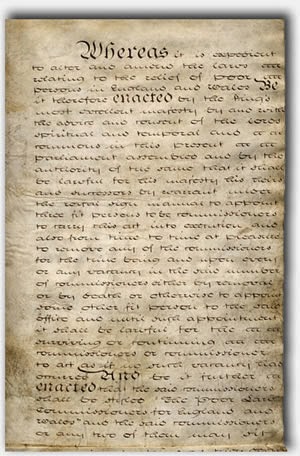 Whereas it is expedient
to alter and amend the laws
relating to the relief of poor
persons in England and Wales Be
it therefore enacted by the King's
most excellent majesty by and with
the advice and consent of the lords
spiritual and temporal and
commons in this present
parliament assembled and by the
authority of the same that it shall
be lawful for his majesty his heirs
and successors by warrant under
the royal sign manual to appoint
three fit persons to be commissioners
to carry this act into execution and
also from time to time at pleasure
to remove any of the commissioners
for the time being and upon every
or any vacancy in the said number
of commissioners either by removal
or by death or otherwise to appoint
some other fit person to the said
office and until such appointment
it shall be lawful for the
surviving or continuing
commissioners or commissioner
to act as if no such vacancy had
occurred And be it further
enacted that the said commissioners
shall be styled "The Poor Law
Commissioners for England and
Wales" and the said commissioners
or any two of them may sit